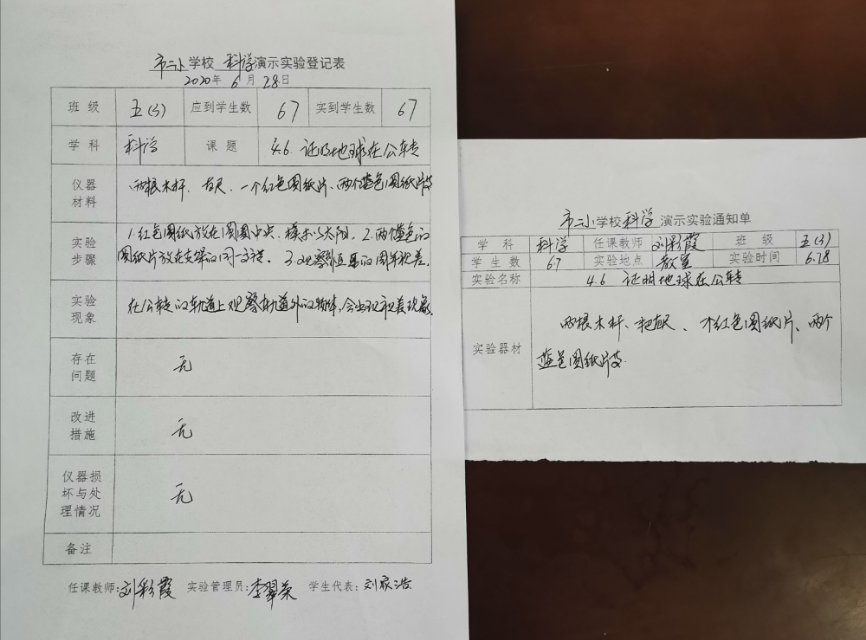 市二小学校 科学演示实验登记表
2020年 6月 28日
班级 五(3) 应到学生数 67 实到学生数 67
学科 科学 课题 4.6 证明地球在公转
仪器材料 两根木杆、直尺、一个红色圆纸片、两个蓝色圆纸片
实验步骤 1.红色圆纸放在圆圈中央,模示为太阳。2.两个蓝色的
圆纸片放在支架的同一方法。3.观察到恒星的周年视差。
实验现象 在公转的轨道上观察轨道外的物体,会出现视差现象
存在问题 无
改进措施 无
仪器损坏与处理情况 无
备注
任课教师:刘彩霞 实验管理员:李翠英 学生代表:刘家浩
市二小学校 科学 演示实验通知单
学科 科学 任课教师 刘彩霞 班级 五(3)
学生数 67 实验地点 教室 实验时间 6.28
实验名称 4.6 证明地球在公转
实验器材 两根木杆、直尺、个红色圆纸片、两个
蓝色圆纸片